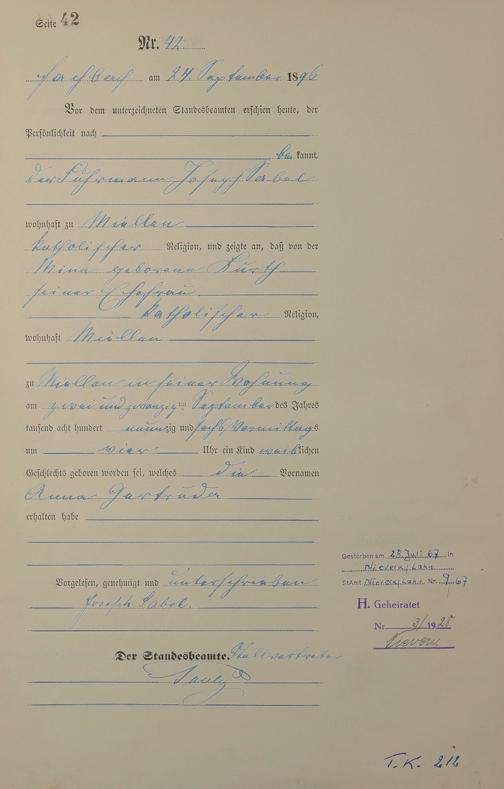 Seite 42
Nr. 42
Fachbach am 24. September 1896
Vor dem unterzeichneten Standesbeamten erschien heute, der
Persönlichkeit nach
bekannt,
der Fuhrmann Joseph Sabel
wohnhaft zu Miellen
katholischer Religion, und zeigte an, daß von der
Mina geborene Kurth
seiner Ehefrau
katholischer Religion,
wohnhaft Miellen
zu Miellen in seiner Wohnung
am zwei und zwanzigten September des Jahres
tausend acht hundert neunzig und sechs Vormittags
um vier Uhr ein Kind weiblichen
Geschlechts geboren worden sei, welches die Vornamen
Anna Gertruda
erhalten habe
Vorgelesen, genehmigt und unterschrieben
Joseph Sabel.
Der Standesbeamte. Stellvertreter
Gestorben am 28. Juli 67 in
Nievern/Lahn
StAmt Nievern/Lahn Nr. 9/67
H. Geheiratet
Nr 3/1928
Nievern
T.K. 212